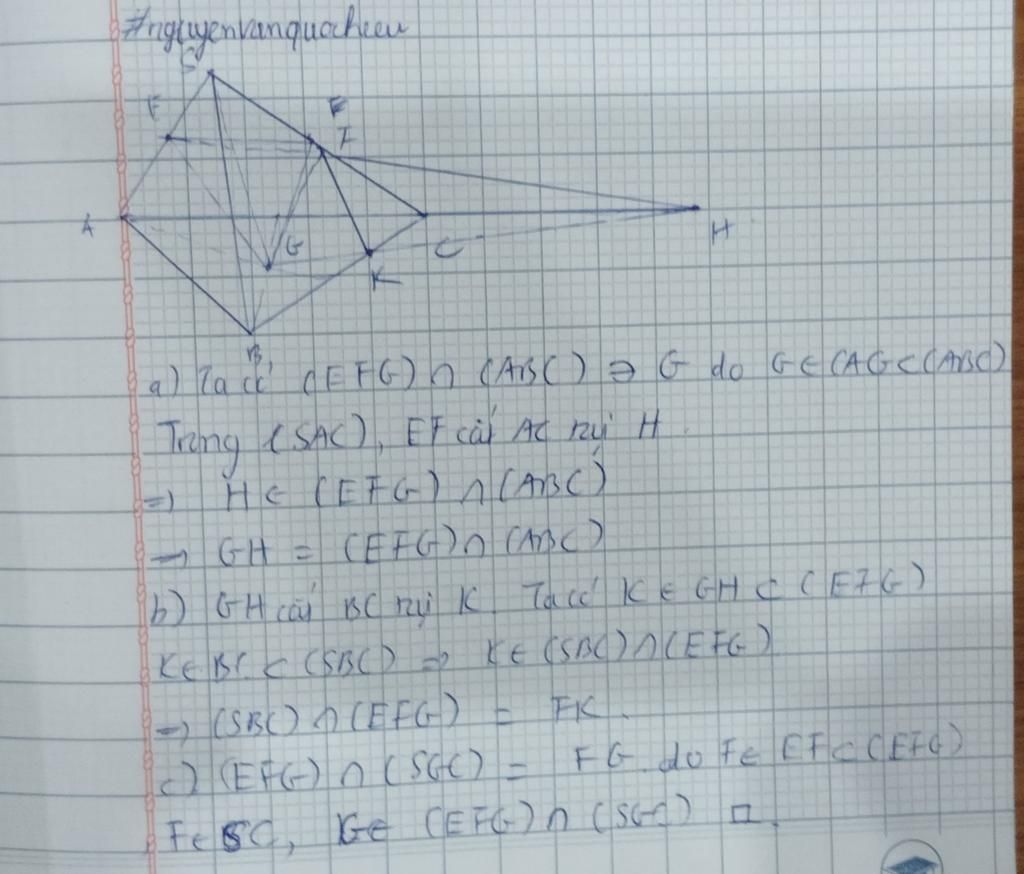 #nguyenvanquochieu
S
E F
F
A G C H
K
B
a) Ta có (EFG) ∩ (ABC) ∋ G do G ∈ (AG ⊂ (ABC)
Trong (SAC), EF cắt AC tại H.
=> H ∈ (EFG) ∩ (ABC)
→ GH = (EFG) ∩ (ABC)
b) GH cắt BC tại K. Ta có K ∈ GH ⊂ (EFG)
K ∈ BC ⊂ (SBC) => K ∈ (SBC) ∩ (EFG)
=> (SBC) ∩ (EFG) = FK.
c) (EFG) ∩ (SGC) = FG do F ∈ EF ⊂ (EFG)
F ∈ SC, G ∈ (EFG) ∩ (SGC) □.